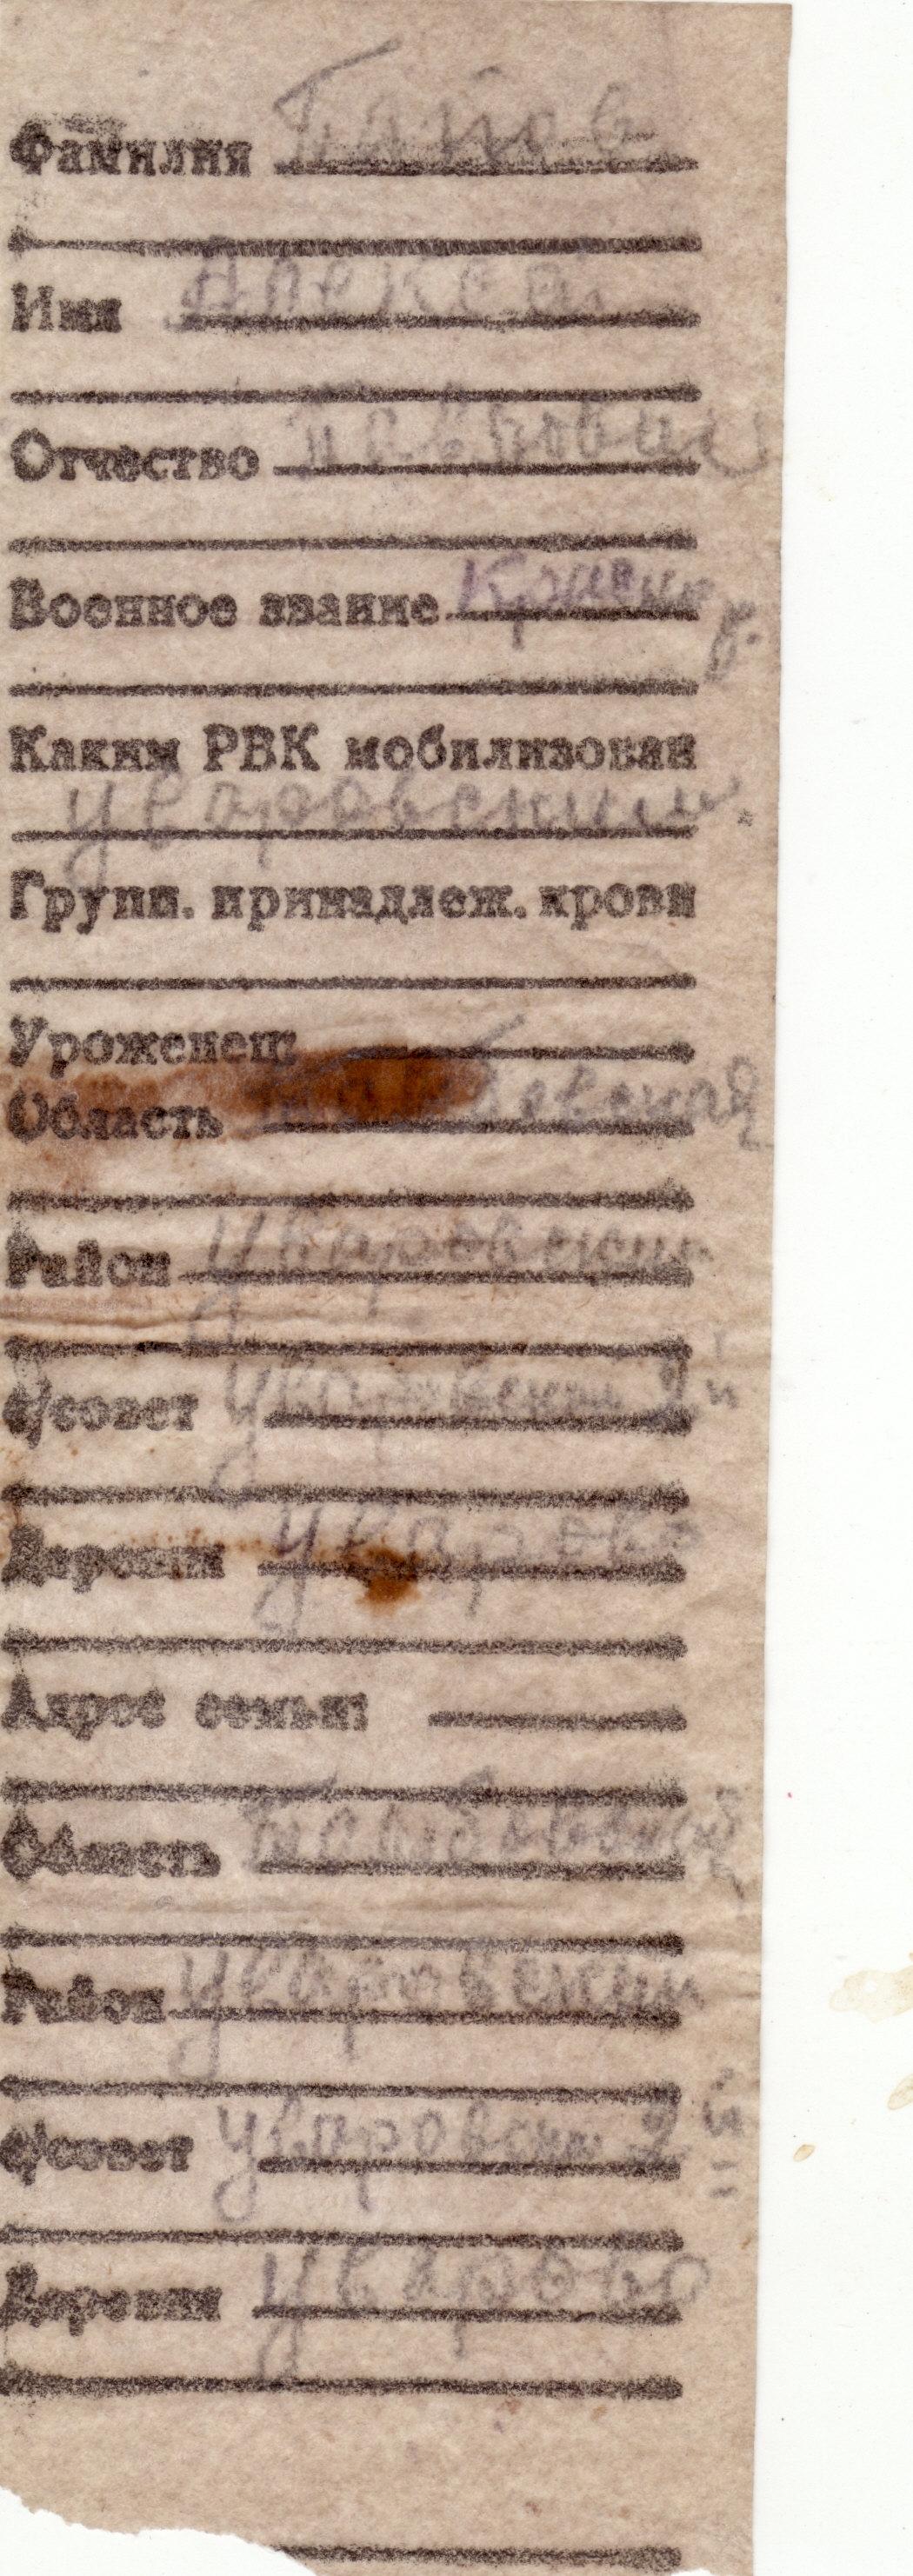 Фамилия
Имя Алексей
Отчество
Военное звание Красно
Каким РВК мобилизован
Уваровским
Групп. принадлеж. крови
Уроженец:
Область Тамбовской
Район Уваровский
с/совет Уваровский 2й
Деревня Уварово
Адрес семьи:
Область Тамбовской
Район Уваровский
с/совет Уваровский 2й
Деревня Уварово